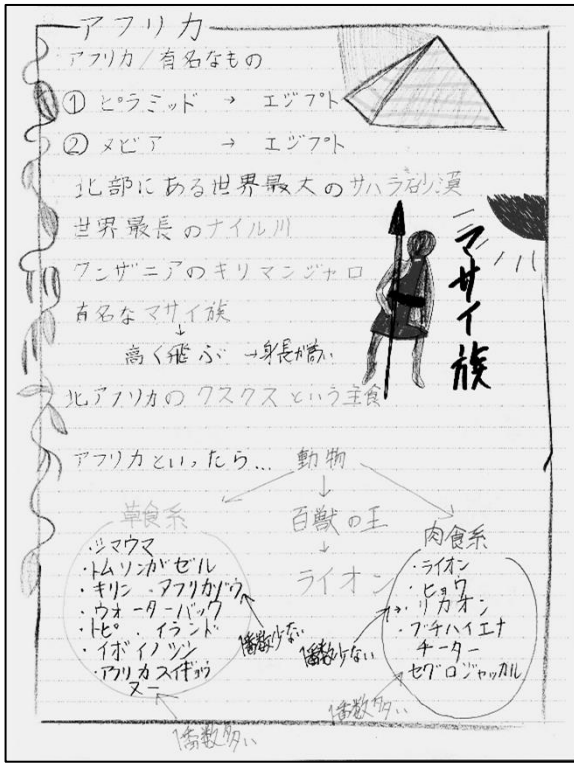 アフリカ
アフリカ/有名なもの
① ピラミッド → エジプト
② メビア → エジプト
北部にある世界最大のサハラ砂漠
世界最長のナイル川
タンザニアのキリマンジャロ
有名なマサイ族
↓
高く飛ぶ →身長が高い
マサイ族
北アフリカのクスクスという主食
アフリカといったら… 動物
草食系
・シマウマ
・トムソンガゼル
・キリン ・アフリカゾウ
・ウォーターバック
・トピ ・イランド
・イボイノシシ
・アフリカスイギュウ
ヌー
1番数少ない
1番数多い
百獣の王
↓
ライオン
肉食系
・ライオン
・ヒョウ
・リカオン
・ブチハイエナ
チーター
セグロジャッカル
1番数少ない
1番数多い